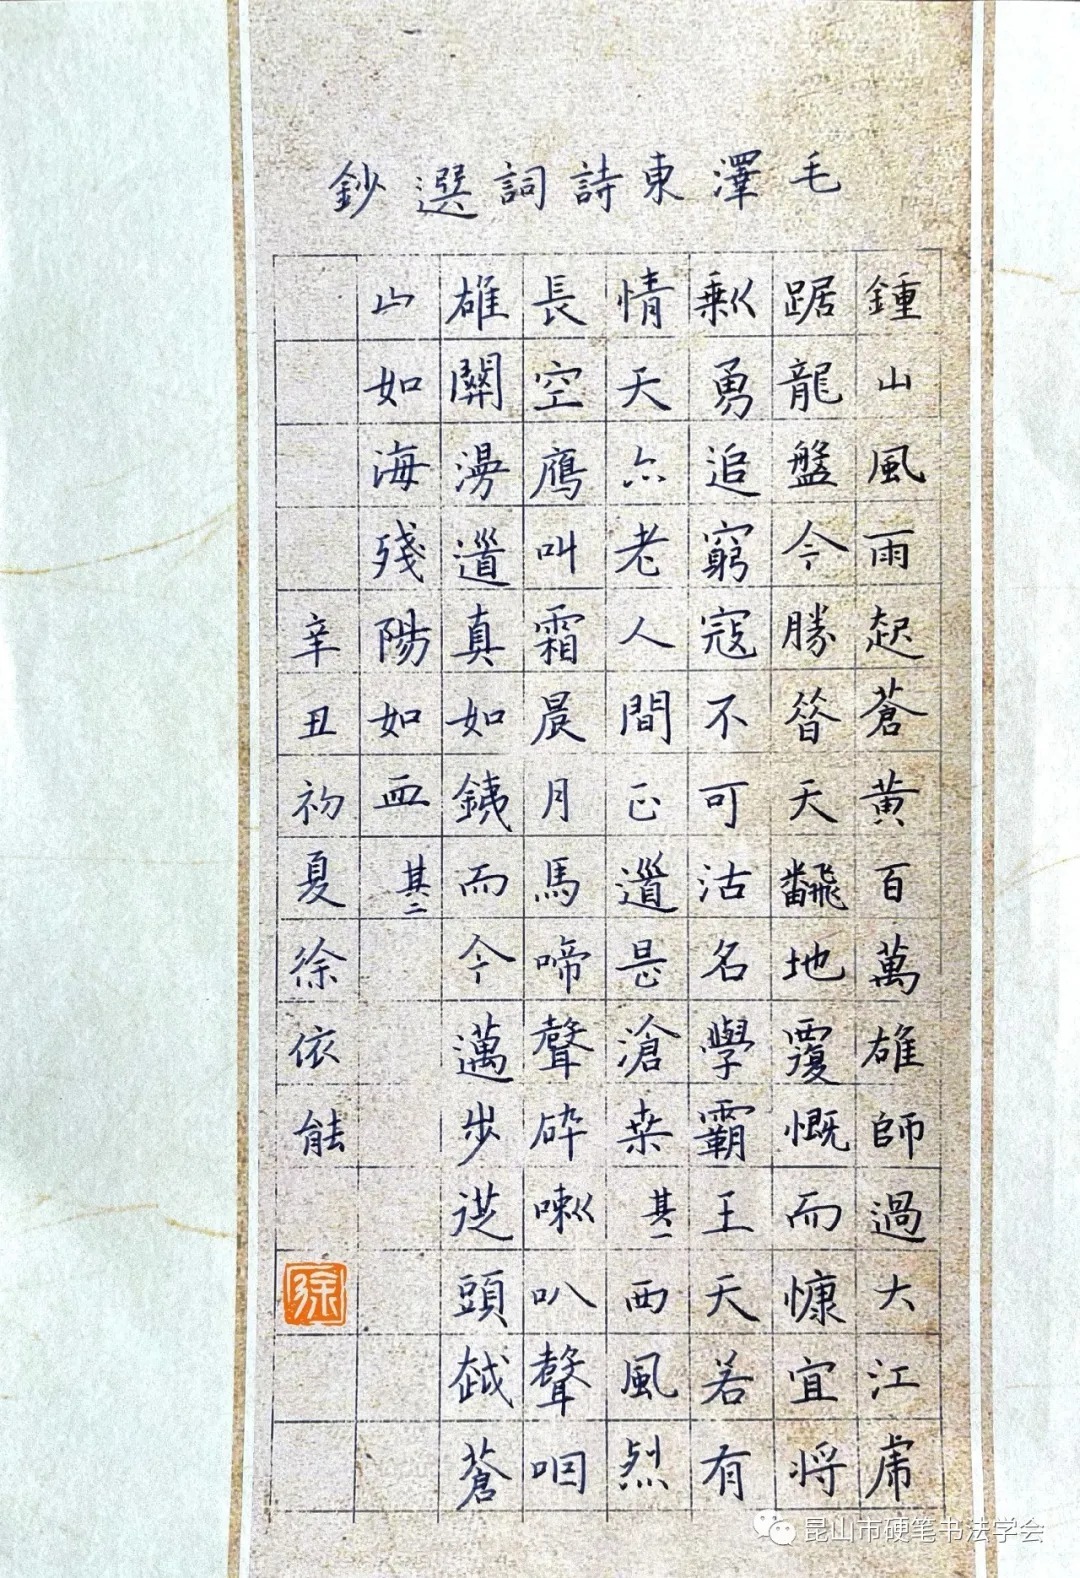 毛澤東詩詞選鈔
鍾山風雨起蒼黃百萬雄師過大江虎
踞龍盤今勝昝天飜地覆慨而慷宜將
剩勇追窮寇不可沽名學霸王天若有
情天亦老人間正道是滄桑其一西風烈
長空鴈叫霜晨月馬啼聲碎喇叭聲咽
雄關漫道真如鐵而今邁步從頭越蒼
山如海殘陽如血其二
辛丑初夏徐依能
徐
昆山市硬笔书法学会